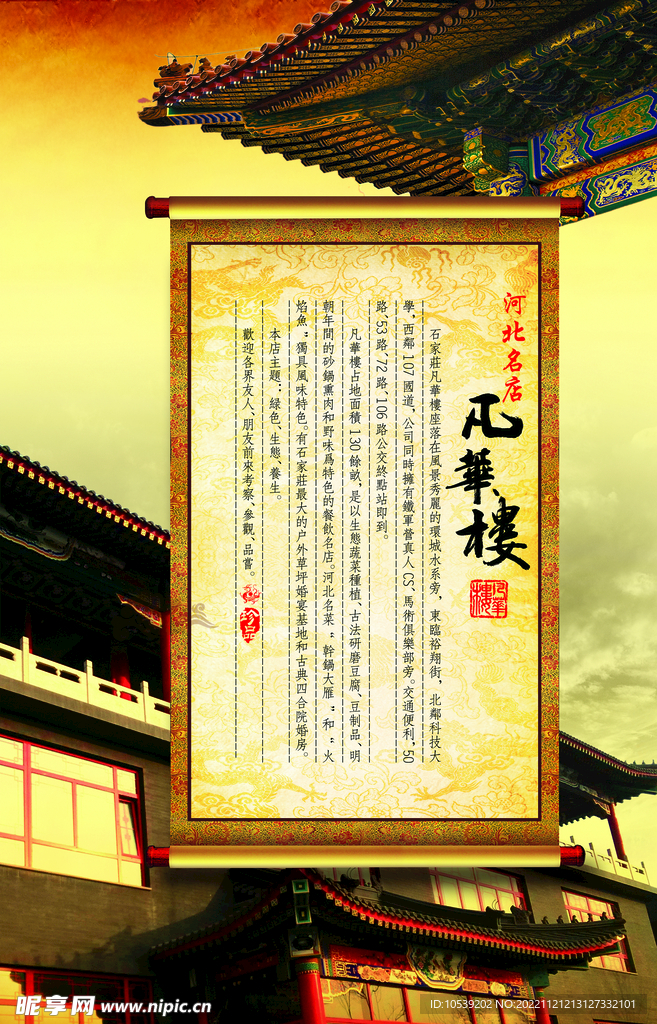 河北名店
凡華樓
凡華樓
石家莊凡華樓座落在風景秀麗的環城水系旁，東臨裕翔街，北鄰科技大
學，西鄰 107 國道，公司同時擁有鐵軍營真人 CS、馬術俱樂部旁。交通便利，50
路、53 路、72 路、106 路公交終點站即到。
凡華樓占地面積 130 餘畝，是以生態蔬菜種植、古法研磨豆腐、豆制品、明
朝年間的砂鍋熏肉和野味爲特色的餐飲名店。河北名菜“幹鍋大雁“和“火
焰魚“獨具風味特色。有石家莊最大的户外草坪婚宴基地和古典四合院婚房。
本店主題：緑色、生態、養生。
歡迎各界友人、朋友前來考察、參觀、品嘗。
珍品
昵享网 www.nipic.cn
ID:10539202 NO:20221121213127332101